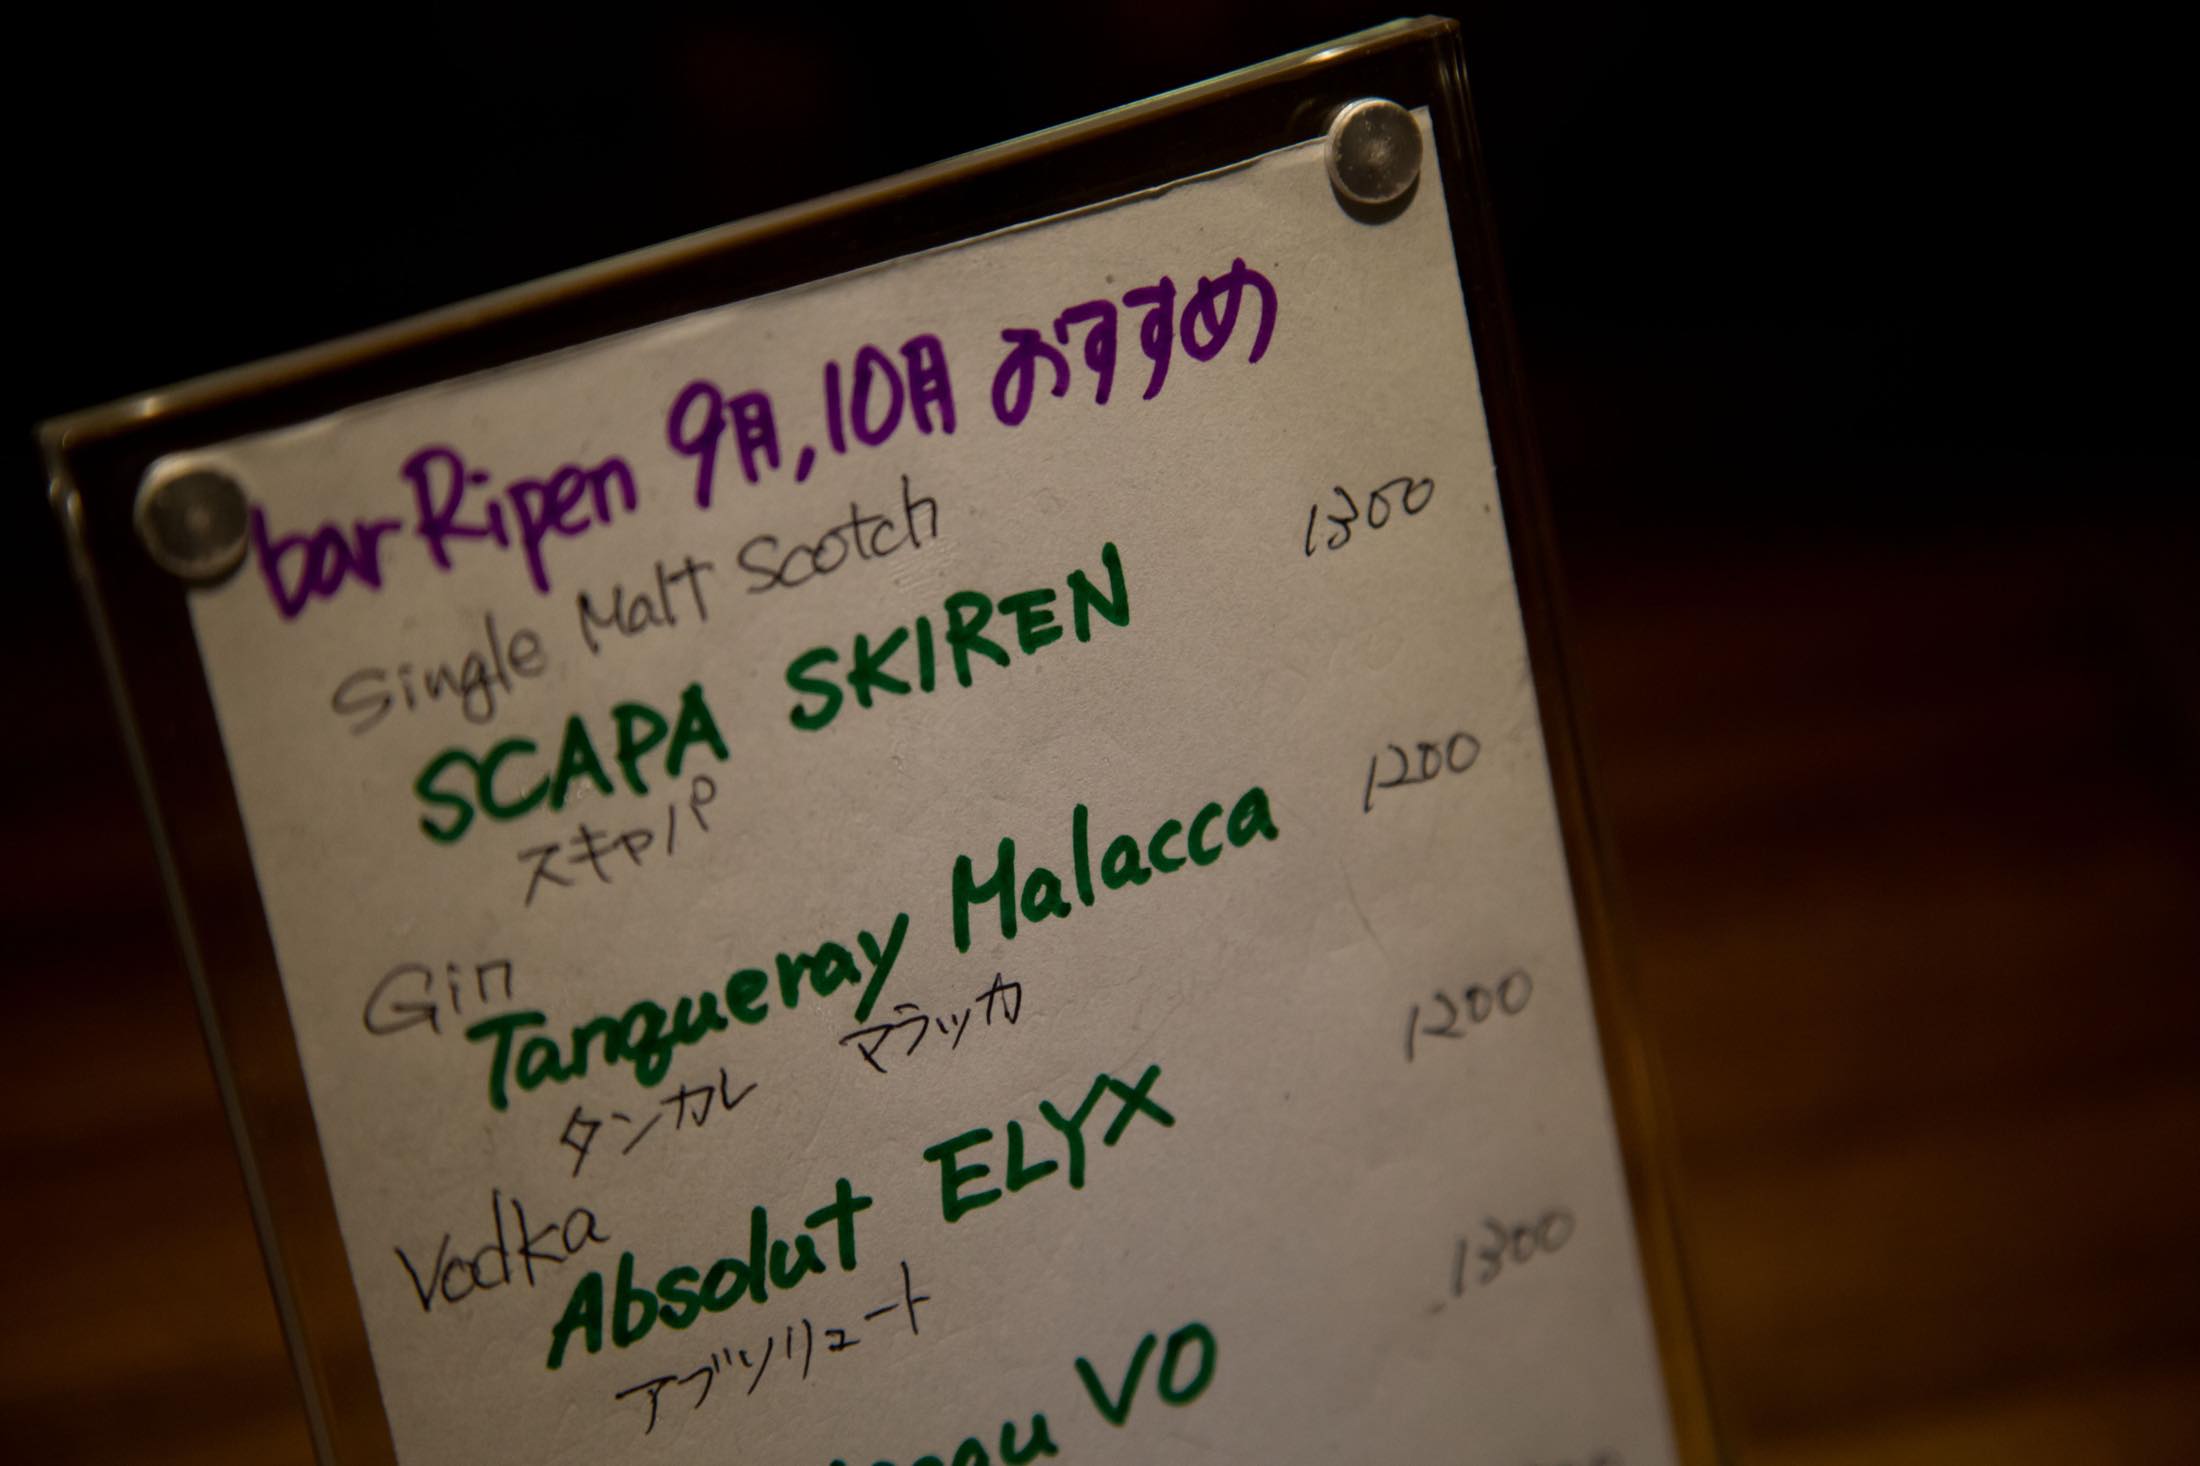 bar Ripen 9月,10月 おすすめ
Single Malt Scotch
SCAPA SKIREN 1300
スキャパ
Gin
Tanqueray Malacca 1200
タンカレ マラッカ
Vodka
Absolut ELYX 1200
アブソリュート
VO 1300